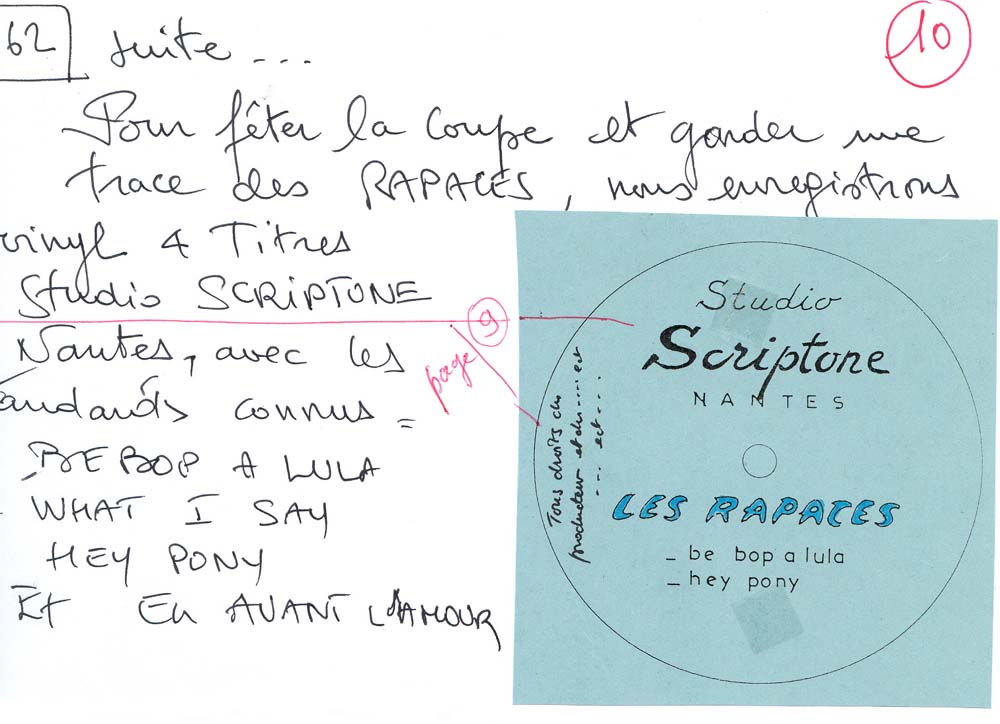 62 suite ...
10
Pour fêter la coupe et garder une
trace des RAPACES, nous enregistrons
vinyl 4 Titres
Studio SCRIPTONE
Nantes, avec les
andards connus =
BE BOP A LULA
WHAT I SAY
HEY PONY
Et En AVANT L'AMOUR
page 9
Studio
Scriptone
NANTES
Tous droits du
producteur et du .... ect
... ect ...
LES RAPACES
_ be bop a lula
_ hey pony